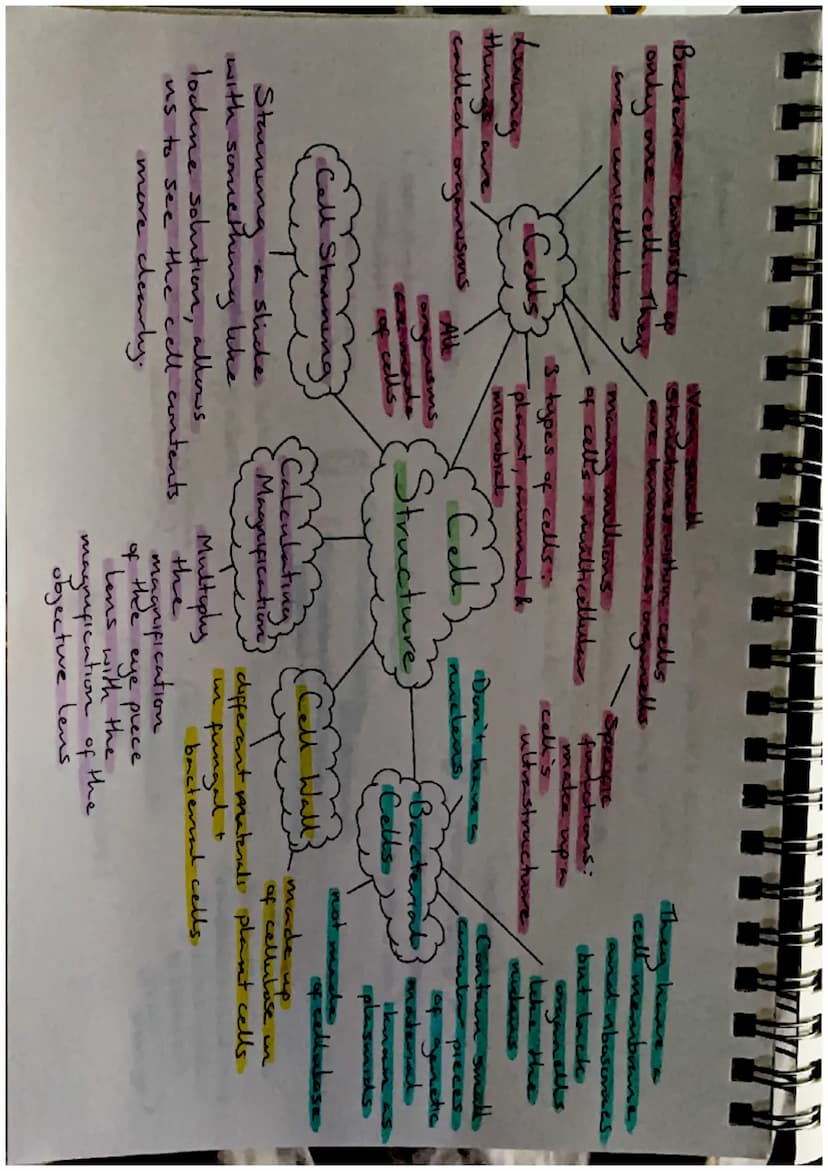 Bacteria consists of
only one cell. They
are unicellular
Living
things are
called organisms
Cells
All
organisms
are made
of cells
Very small
structures within cells
are known as organells
many millions
of cells = multicellular
3 types of cells:
plant, animal &
microbial
Specific
functions:
make up a
cell's
ultrastructure
Cell
Structure
Cell Staining
Staining a slide
with something like
Iodine solution, allows
us to see the cell contents
more clearly.
Calculating
Magnification
Multiply
the
magnification
of the eye piece
lens with the
magnification of the
objective lens
Cell Wall
different materials
in fungal +
bacterial cells
made up
of cellulose in
plant cells
Bacterial
Cells
Don't have a
nucleus
They have a
cell membrane
and ribosomes
but lack
organells
like the
nucleus
Contain small
circular pieces
of genetic
material
known as
plasmids
not made
of cellulose